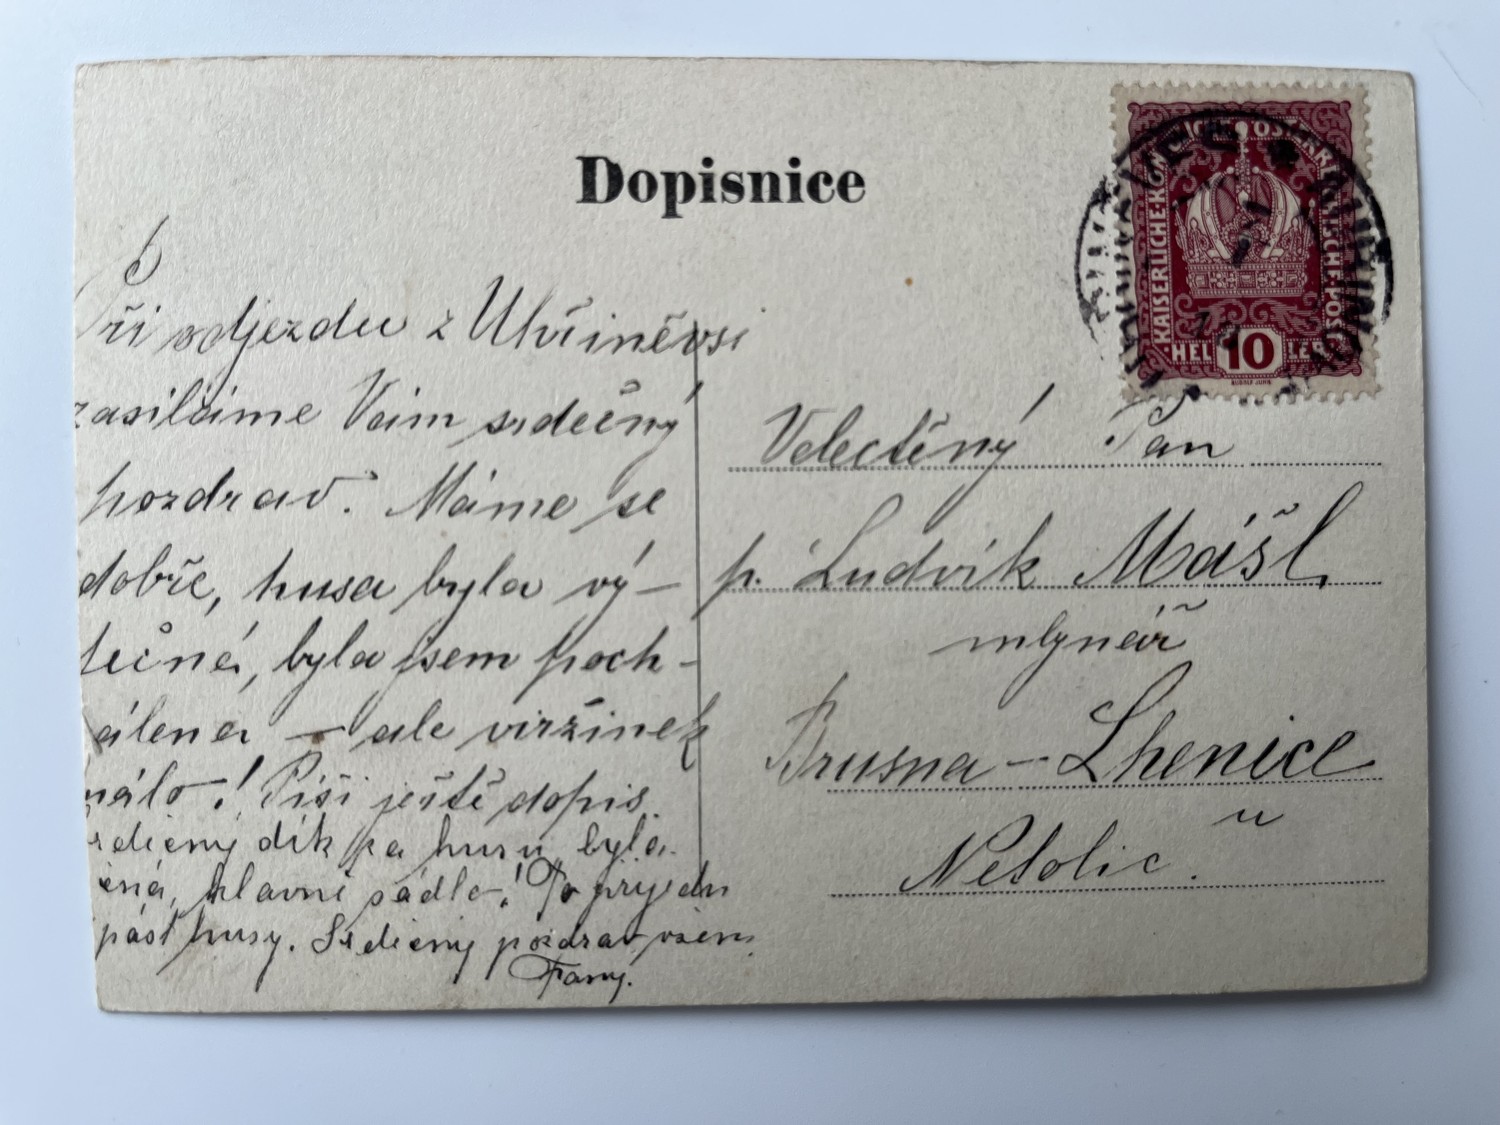 Dopisnice
KAISERLICHE·KÖNIGLICHE ÖSTERREICHISCHE·POST
HELLER
10
RUDOLF JUNK
Při odjezdu z Uhříněvsi
zasíláme Vám srdečný
pozdrav. Máme se
dobře, husa byla vý–
tečná, byla jsem poch–
álena – ale viržinek
málo! Píši ještě dopis.
srdečný dík za husu byla
hlavně sádlo! To přijedu
pást husy. Srdečný pozdrav všem
Fany.
Velectěný Pan
p. Ludvík Mášl
mlynář
Brusna – Lhenice
u
Netolic.